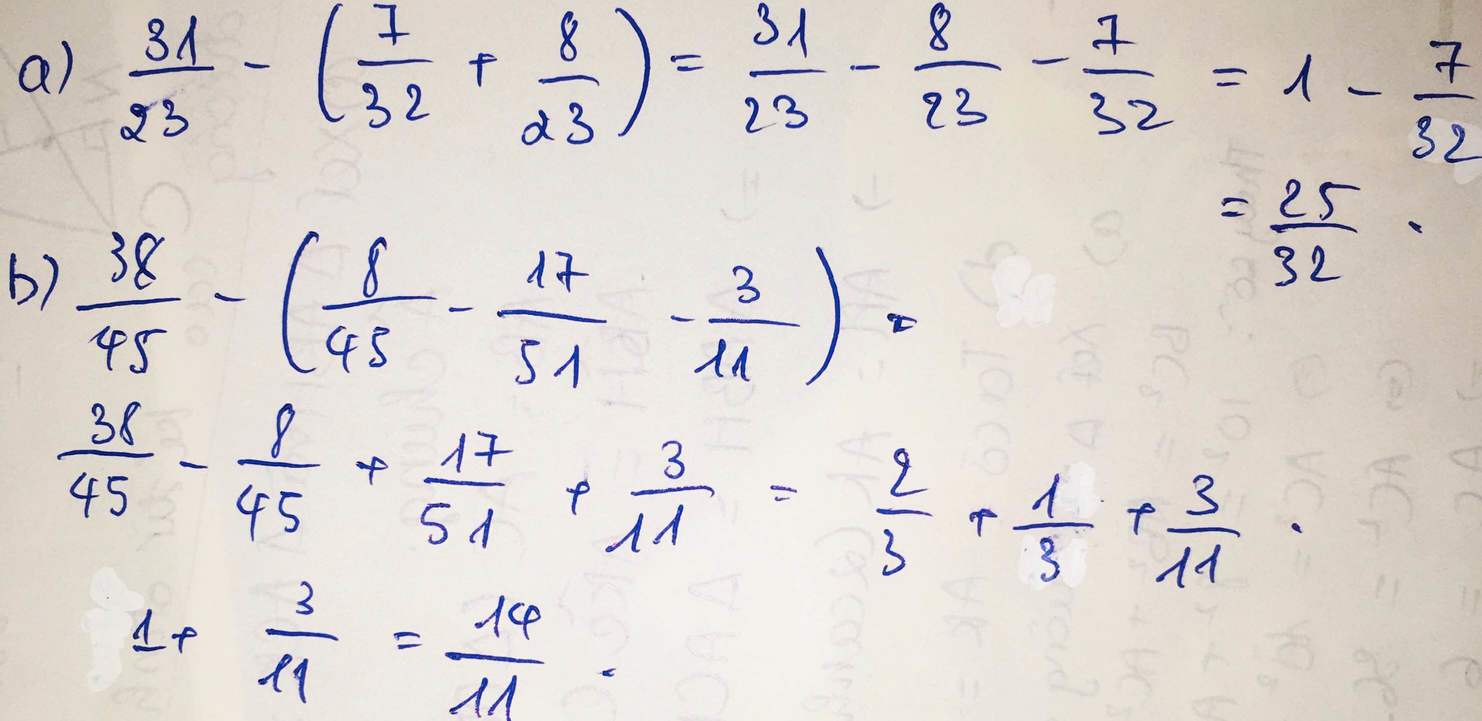 a) 31/23 - (7/32 + 8/23) = 31/23 - 8/23 - 7/32 = 1 - 7/32
= 25/32 .
b) 38/45 - (8/45 - 17/51 - 3/11) =
38/45 - 8/45 + 17/51 + 3/11 = 2/3 + 1/3 + 3/11 .
1 + 3/11 = 14/11 .